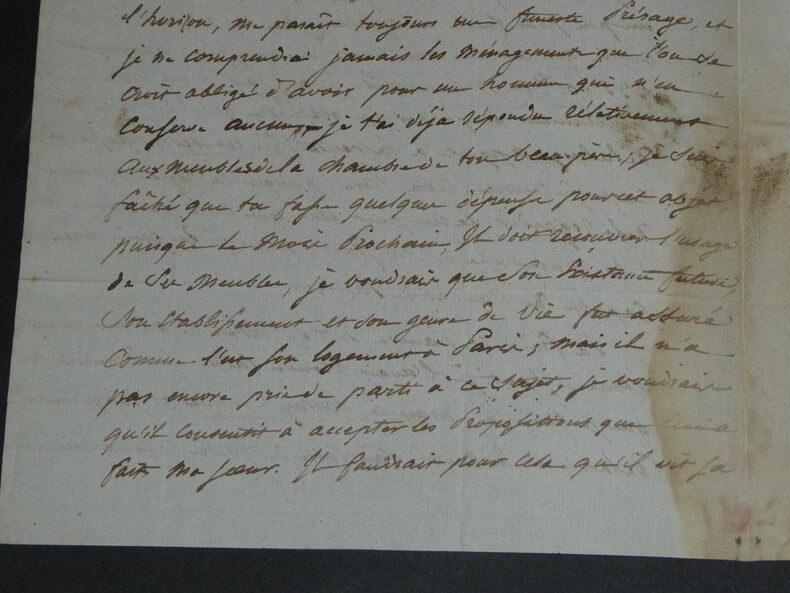 l'horizon, me paraît toujours un funeste Présage, et
je ne comprendrai jamais les ménagements que l'on se
croit obligé d'avoir pour un homme qui n'en
conserve aucun, je t'ai déja répondu relativement
aux meubles de la chambre de ton beau-père, je suis
fâché que tu fasse quelque dépense pour cet objet,
puisque le Mois Prochain, Il doit recouvrer l'usage
de ses Meubles, je voudrais que son Existance future,
son établissement et son genre de vie fut assuré
comme l'est son logement à Paris, mais il n'a
pas encore pris de parti à ce sujet, je voudrais
qu'il consentit à accepter les Propositions que lui a
fait ma sœur. Il faudrait pour cela qu'il vit sa